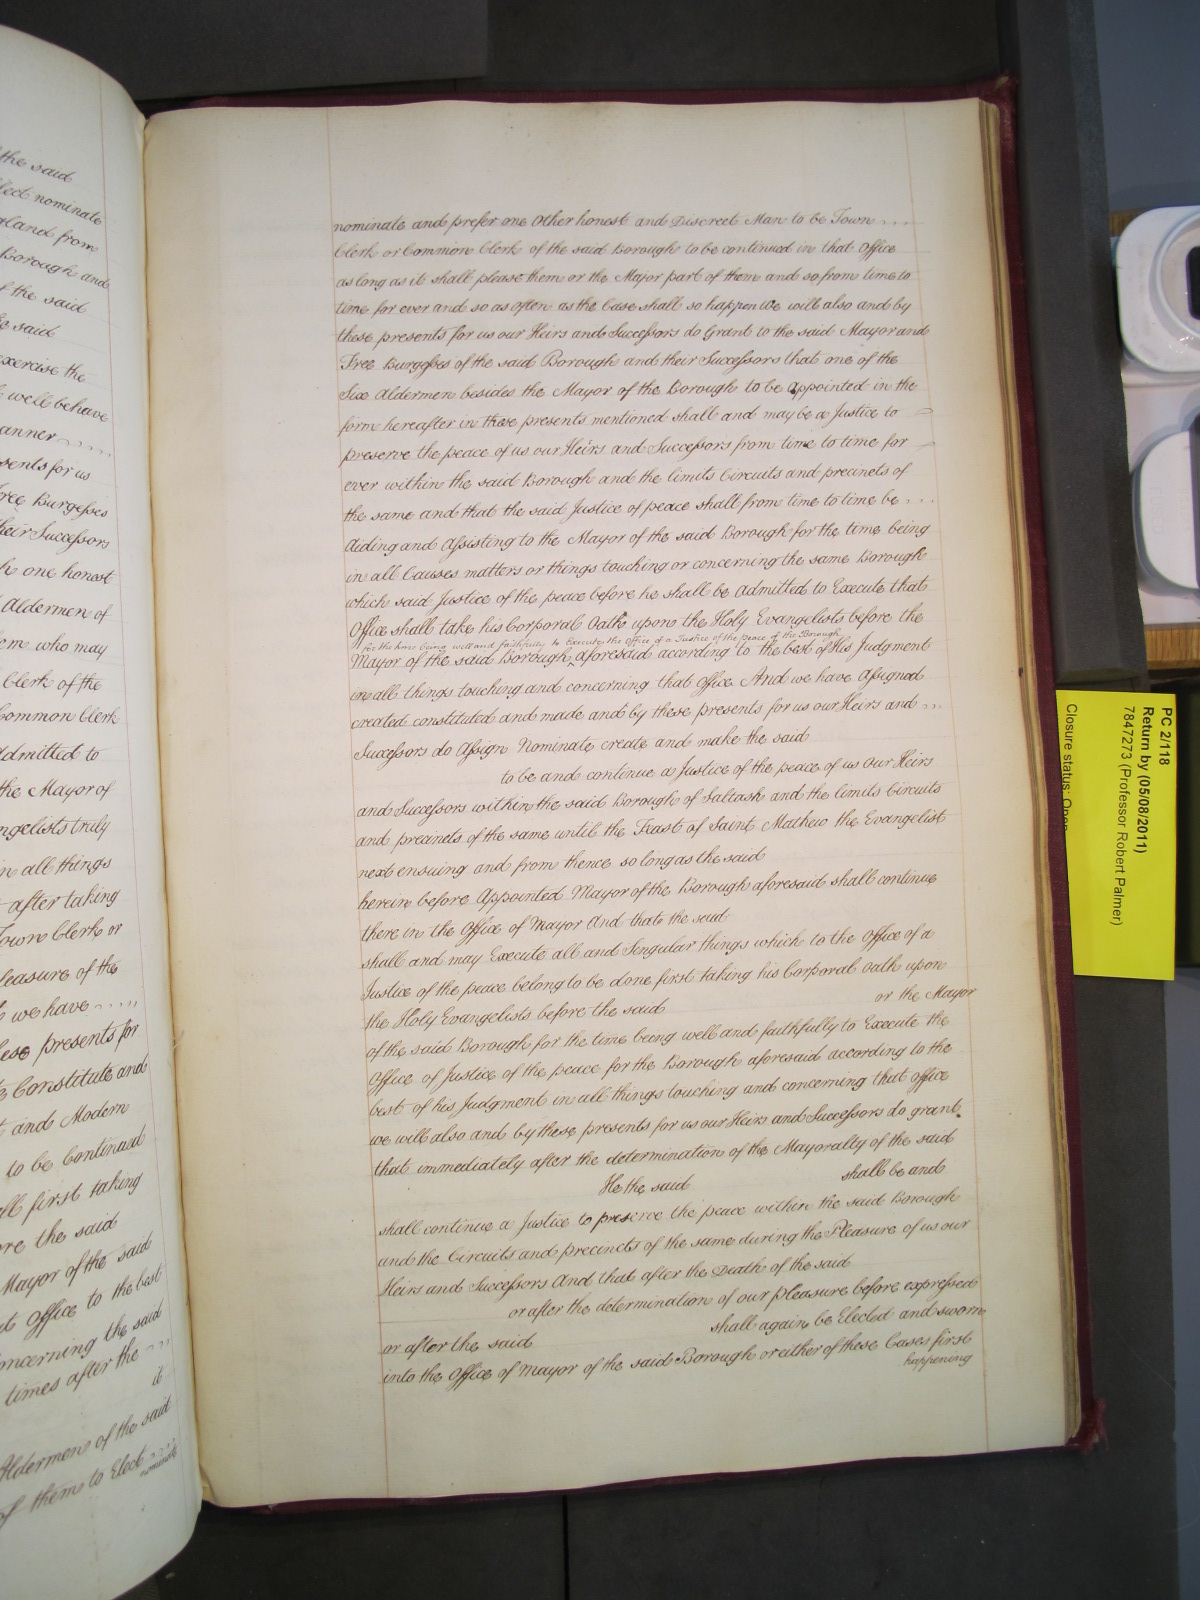 the said
lect nominate
gland from
Borough and
f the said
e said
exercise the
well behave
anner
sents for us
ree Burgesses
heir Successors
h one honest
Aldermen of
em who may
Clerk of the
Common Clerk
Admitted to
the Mayor of
ngelists truly
in all things
after taking
Town Clerk or
leasure of the
we have
ese presents for
Constitute and
t and Modern
to be Continued
ll first taking
ore the said
Mayor of the said
t Office to the best
oncerning the said
times after the
it
Aldermen of the said
of them to Elect
nominate
nominate and prefer one Other honest and Discreet Man to be Town
Clerk or Common Clerk of the said Borough to be continued in that Office
as long as it shall please them or the Major part of them and so from time to
time for ever and so as often as the Case shall so happen We will also and by
these presents for us our Heirs and Successors do Grant to the said Mayor and
Free Burgesses of the said Borough and their Successors that one of the
Six Aldermen besides the Mayor of the Borough to be appointed in the
form hereafter in these presents mentioned shall and may be a Justice to
preserve the peace of us our Heirs and Successors from time to time for
ever within the said Borough and the limits Circuits and precincts of
the same and that the said Justice of peace shall from time to time be
Aiding and Assisting to the Mayor of the said Borough for the time being
in all Causes matters or things touching or concerning the same Borough
which said Justice of the peace before he shall be Admitted to Execute that
Office shall take his Corporal Oath upon the Holy Evangelists before the
for the time being well and faithfully to Execute the Office of a Justice of the peace of the Borough
Mayor of the said Borough ‸ aforesaid according to the best of His Judgment
in all things touching and concerning that Office And we have Assigned
created constituted and made and by these presents for us our Heirs and
Successors do Assign Nominate create and make the said
to be and continue a Justice of the peace of us our Heirs
and Successors within the said Borough of Saltash and the limits Circuits
and precincts of the same until the Feast of Saint Mathew the Evangelist
next ensuing and from thence so long as the said
herein before Appointed Mayor of the Borough aforesaid shall continue
there in the Office of Mayor And that the said
shall and may Execute all and Singular things which to the Office of a
Justice of the peace belong to be done first taking his Corporal Oath upon
the Holy Evangelists before the said or the Mayor
of the said Borough for the time being well and faithfully to Execute the
Office of Justice of the peace for the Borough aforesaid according to the
best of his Judgment in all things touching and concerning that office
we will also and by these presents for us our Heirs and Successors do grant
that immediately after the determination of the Mayoralty of the said
He the said shall be and
shall continue a Justice to preserve the peace within the said Borough
and the Circuits and precincts of the same during the Pleasure of us our
Heirs and Successors And that after the Death of the said
or after the determination of our pleasure before expressed
or after the said shall again be Elected and sworn
into the Office of Mayor of the said Borough or either of these Cases first
happening
PC 2/118
Return by (05/08/2011)
7847273 (Professor Robert Palmer)
Closure status: Open